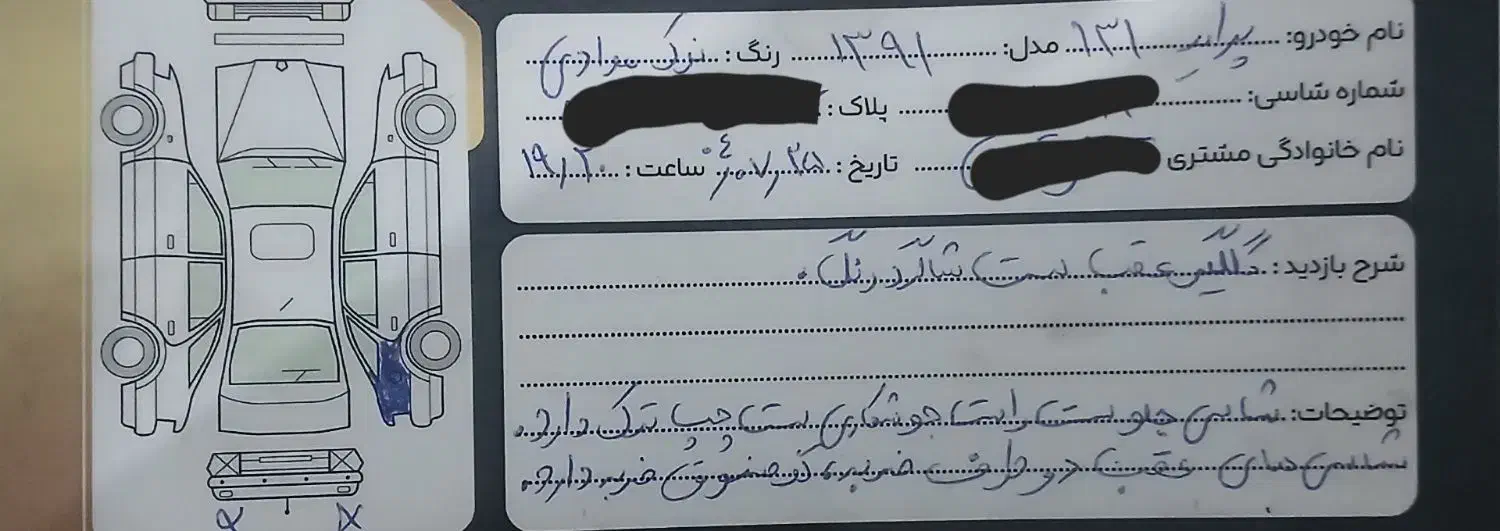 نام خودرو: پراید ۱۳۱ مدل: ۱۳۹۱ رنگ: نوک مدادی
شماره شاسی: پلاک:
نام خانوادگی مشتری تاریخ: ۰۴،۰۷،۲۵ ساعت: ۱۹،۲۰
شرح بازدید: گلگیر عقب سمت شاگرد رنگ.
توضیحات: شاسی جلو سمت راست جوشکاری سمت چپ ترک دارد.
شاسی های عقب دو طرف ضربه، کف صندوق ضربه دارد.